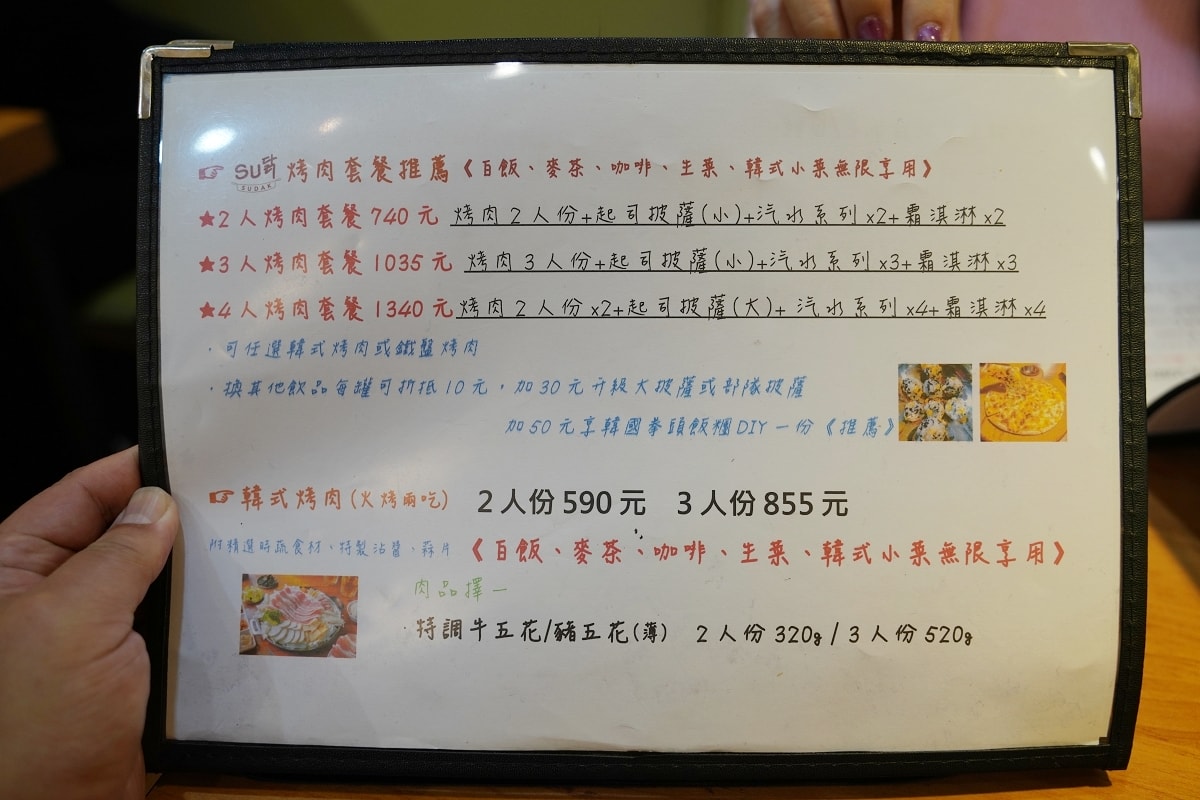 ☞ SU닭 SUDAK 烤肉套餐推薦《白飯、麥茶、咖啡、生菜、韓式小菜無限享用》
★2人烤肉套餐740元 烤肉2人份+起司披薩(小)+汽水系列x2+霜淇淋x2
★3人烤肉套餐1035元 烤肉3人份+起司披薩(小)+汽水系列x3+霜淇淋x3
★4人烤肉套餐1340元 烤肉2人份x2+起司披薩(大)+汽水系列x4+霜淇淋x4
・可任選韓式烤肉或鐵盤烤肉
・換其他飲品每罐可折抵10元，加30元升級大披薩或部隊披薩
加50元享韓國拳頭飯糰DIY一份《推薦》
☞ 韓式烤肉(火烤兩吃) 2人份590元 3人份855元
附精選時蔬食材、特製沾醬、蒜片 《白飯、麥茶、咖啡、生菜、韓式小菜無限享用》
肉品擇一
・特調牛五花/豬五花(薄) 2人份320g/3人份520g